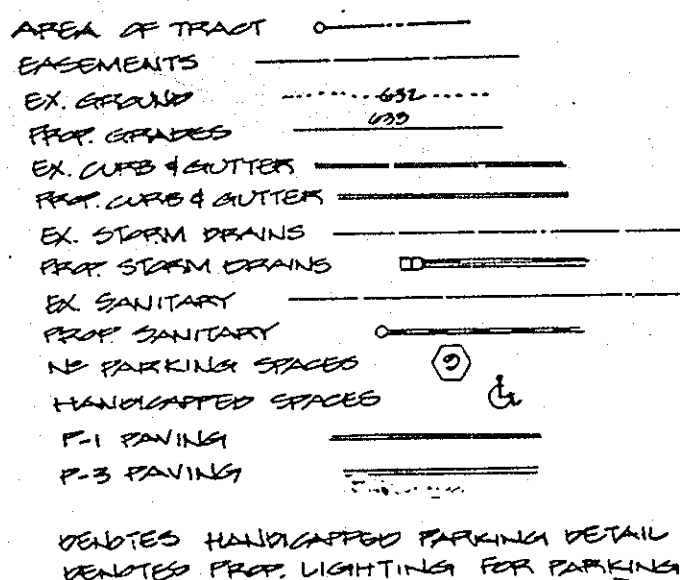 AREA OF TRACT
EASEMENTS
EX. GROUND 632
PROP. GRADES 633
EX. CURB & GUTTER
PROP. CURB & GUTTER
EX. STORM DRAINS
PROP. STORM DRAINS
EX. SANITARY
PROP. SANITARY
Nº PARKING SPACES 9
HANDICAPPED SPACES
P-1 PAVING
P-3 PAVING
DENOTES HANDICAPPED PARKING DETAIL
DENOTES PROP. LIGHTING FOR PARKING